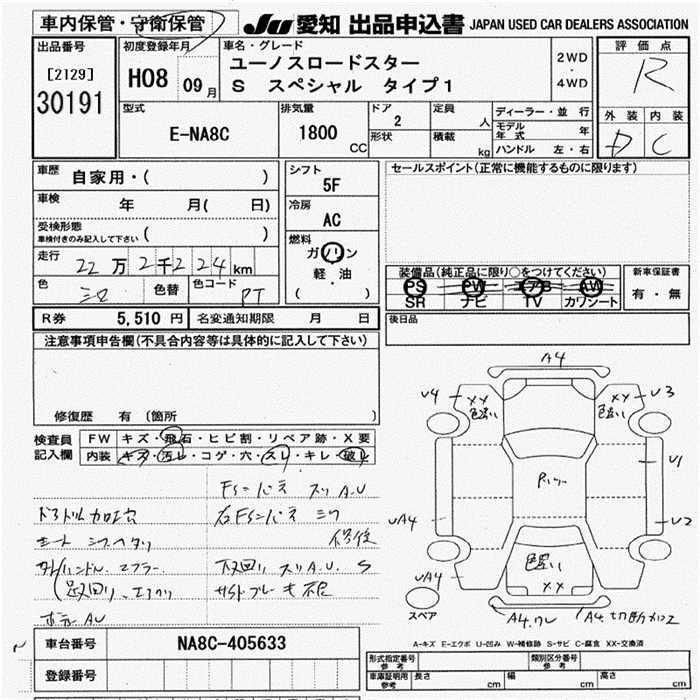 車内保管・守衛保管 JU 愛知 出品申込書 JAPAN USED CAR DEALERS ASSOCIATION
出品番号 初度登録年月 車名・グレード 評価点
[2129] ユーノスロードスター 2WD R
30191 H08 09月 S スペシャル タイプ1 ・ 4WD
型式 排気量 ドア 定員 ディーラー・並行 外装 内装
E-NA8C 1800 CC 2 人 モデル年式 年 D C
形状 積載 kg ハンドル 左・右
車歴 自家用・( ) シフト セールスポイント(正常に機能するものに限ります)
5F
車検 年 月( 日) 冷房
AC
受検形態 ( )
車検付きのみ記入して下さい
燃料
走行 22万2千224km ガソリン 装備品(純正品に限り○をつけてください) 新車保証書
軽・油 PS PW エアB AW 有・無
色 シロ 色替 色コード PT ( ) SR ナビ TV カワシート
R券 5,510円 名変通知期限 月 日 後日品
注意事項申告欄(不具合内容等は具体的に記入して下さい)
修復歴 有 (箇所 )
検査員 FW キズ・飛石・ヒビ割・リペア跡・X要
記入欄 内装 キズ・汚レ・コゲ・穴・スレ・キレ・破レ
A4
U4 XX 色違い XX 色違い U3
U1
UA4 U2
色違い XX
UA4
スペア
A4.ワレ A4 切断加工
ドアトリム加工穴 右Fシーバネ
シートシワヘタリ 修復
下廻リ スリ A.U. S
サイドブレーキ不良
車台番号 NA8C-405633
登録番号
A-キズ E-エクボ U-凹み W-補修跡 S-サビ C-腐食 XX-交換済
形式指定番号 参考 類別区分番号 参考
車庫証明用 参考 長さ cm 幅 cm 高さ cm